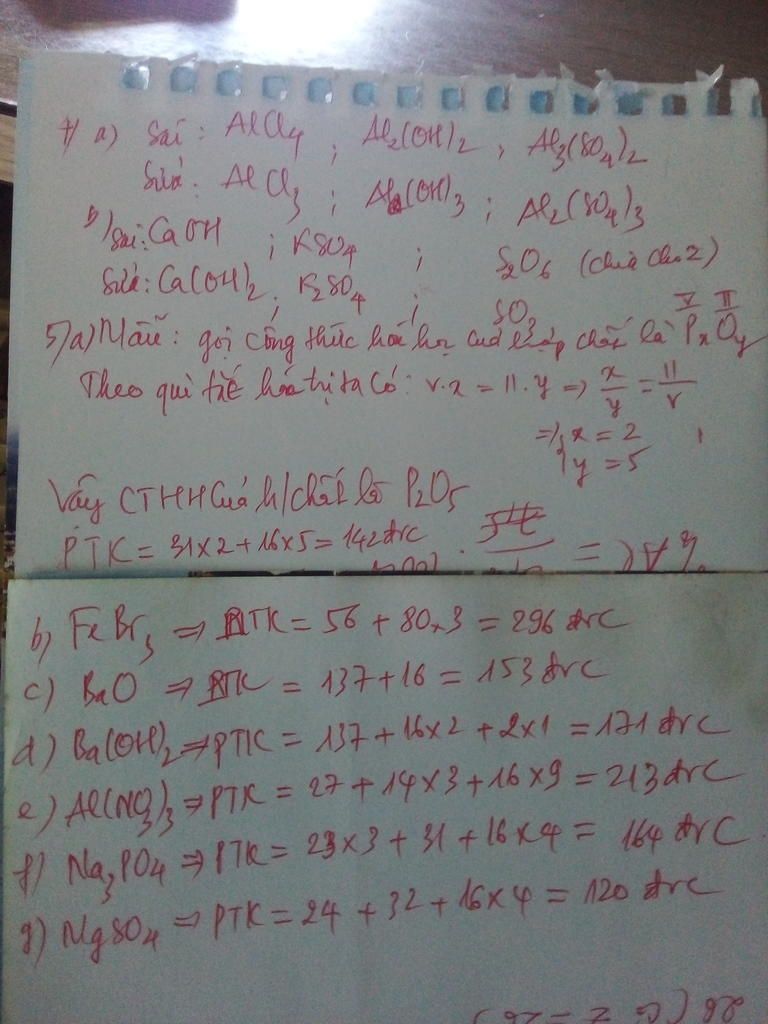 7/ a) Sai : AlCl4 ; Al2(OH)2 ; Al3(SO4)2
Sửa : AlCl3 ; Al(OH)3 ; Al2(SO4)3
b) Sai: CaOH ; KSO4 ; S2O6 (chia cho 2)
Sửa: Ca(OH)2 ; K2SO4 ; SO3
5/a) Mẫu : gọi công thức hoá học của hợp chất là PxOy
V II
Theo qui tắc hoá trị ta có : V.x = II.y => x/y = II/V
=> { x = 2
y = 5
Vậy CTHH của h/chất là P2O5
PTK = 31x2 + 16x5 = 142 đvC
b) FeBr3 => PTK = 56 + 80x3 = 296 đvC
c) BaO => PTK = 137 + 16 = 153 đvC
d) Ba(OH)2 => PTK = 137 + 16x2 + 2x1 = 171 đvC
e) Al(NO3)3 => PTK = 27 + 14x3 + 16x9 = 213 đvC
f) Na3PO4 => PTK = 23x3 + 31 + 16x4 = 164 đvC
g) MgSO4 => PTK = 24 + 32 + 16x4 = 120 đvC